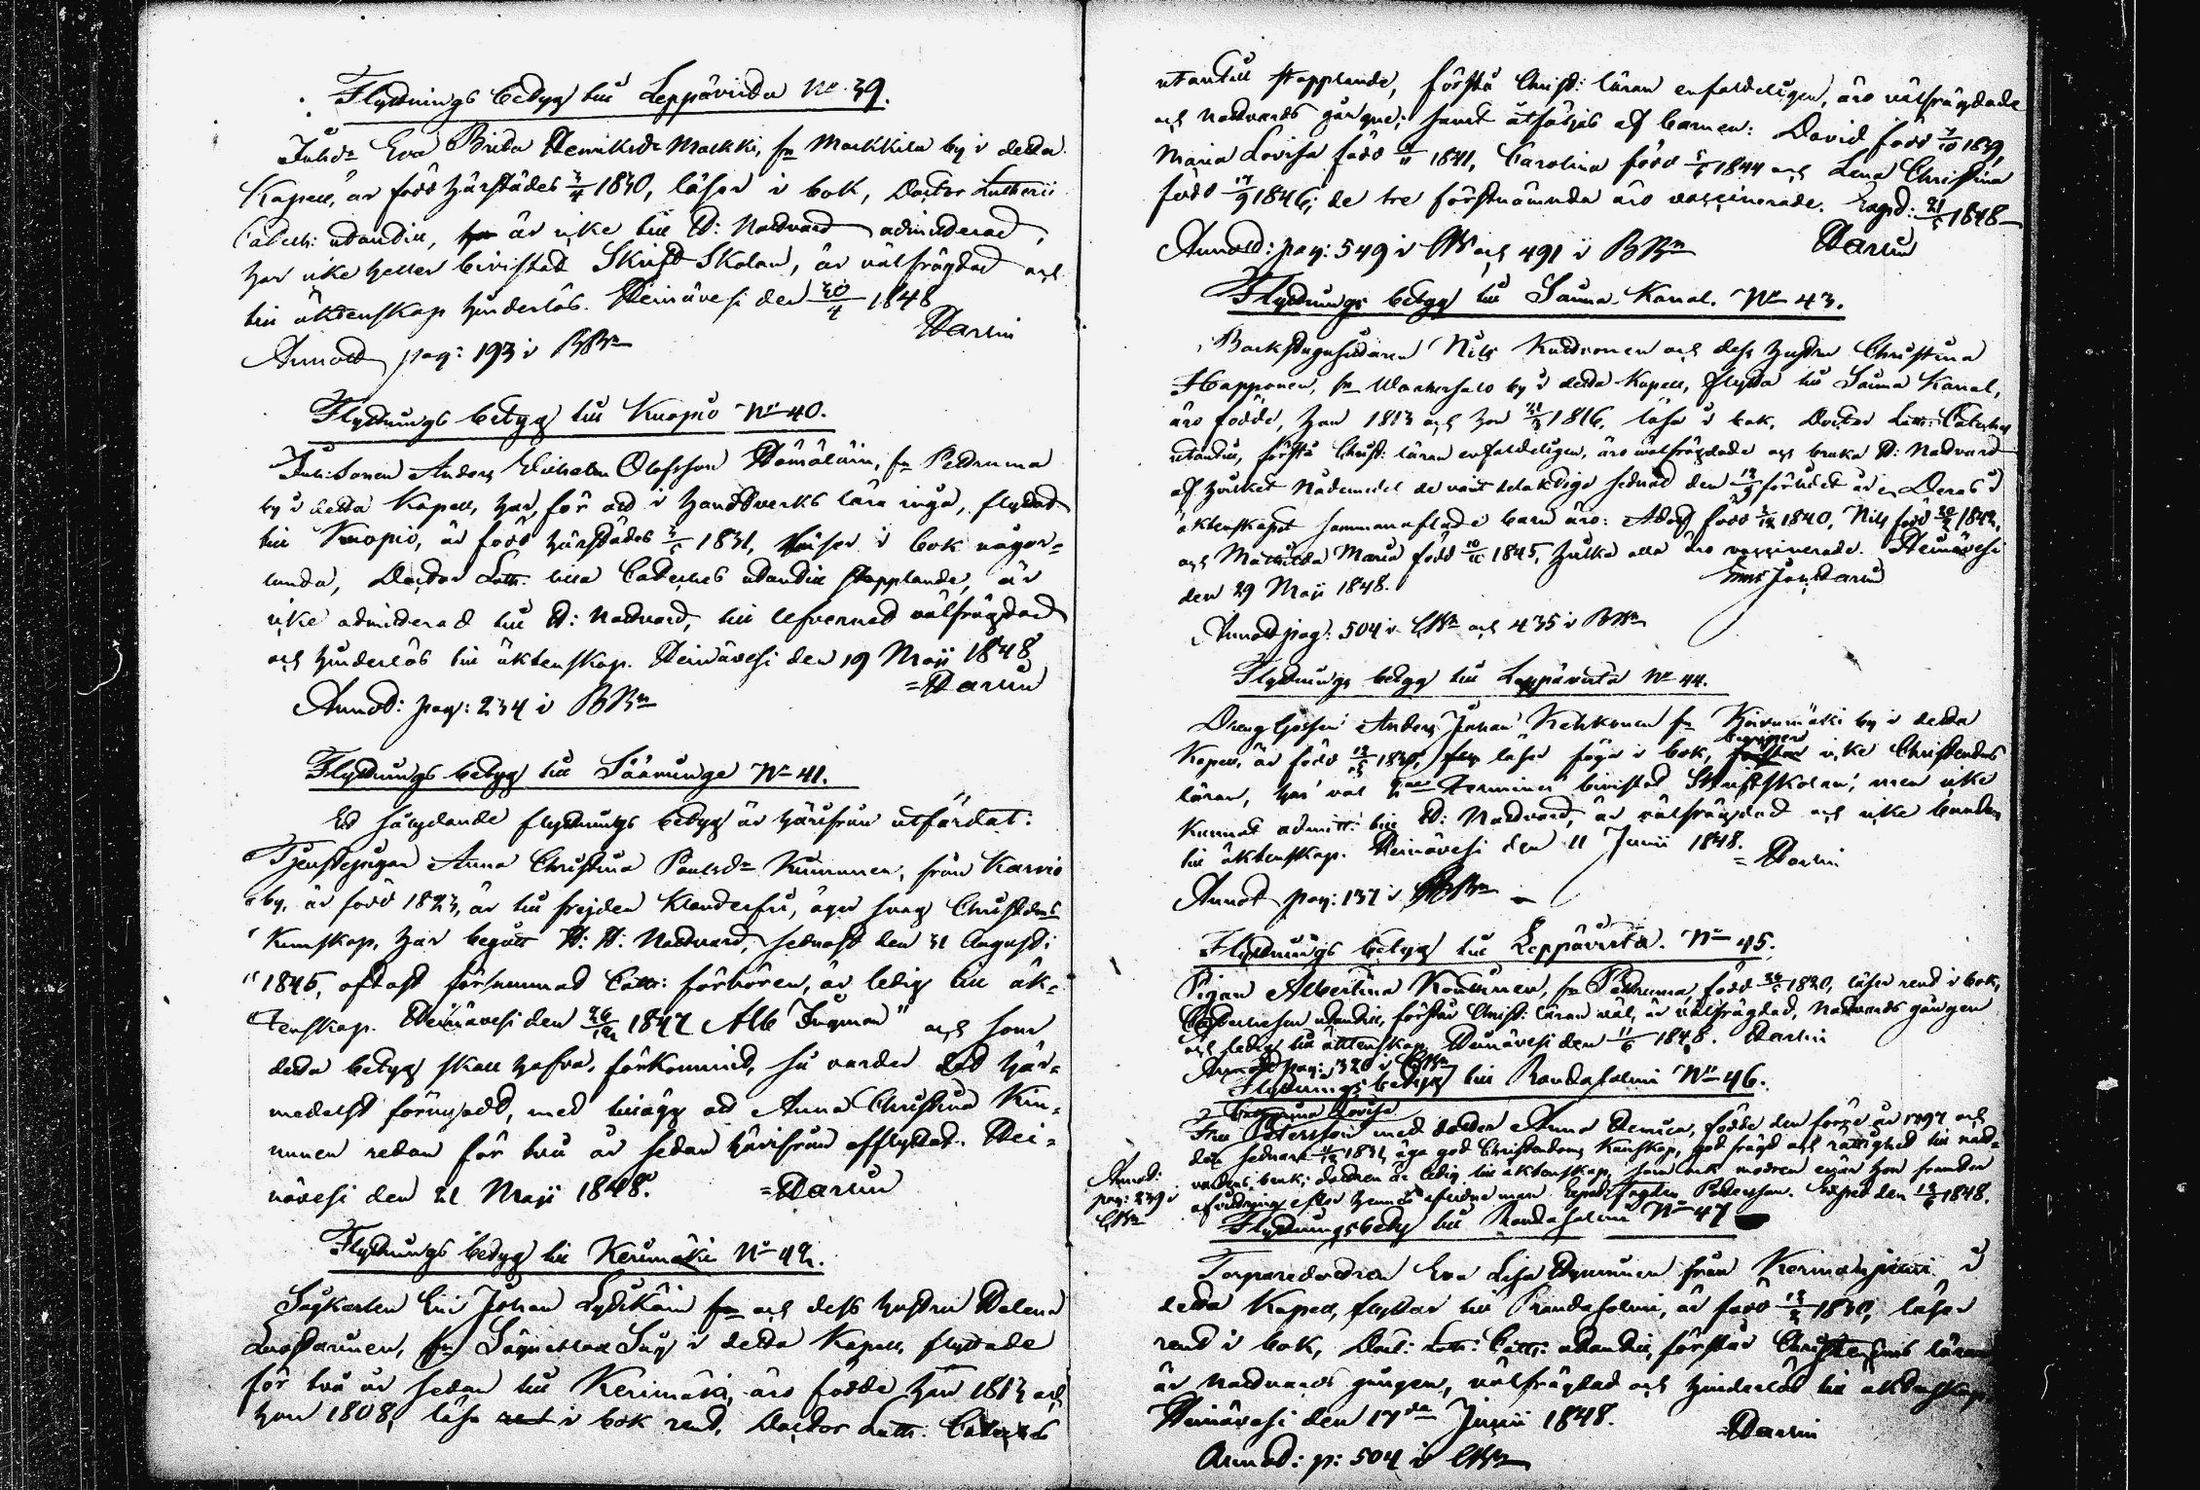 Flyttnings betyg till Leppävirta No 39.
Inhda Eva Brita Henriksdr Makki, fr Makkila by i detta
Kapell, är född härstädes 3/4 1830, läser i bok, Doctor Lutherii
Catech: utantill, är icke till H: Nattvard admitterad,
har icke heller bivistat Skrift Skolan, är välfrägdad och
till äktenskap hinderlös. Heinävesi den 30/4 1848
Harlin
Annoterad pag: 193 i BBn
Flyttnings betyg till Kuopio No 40.
Inh: Sonen Anders Wilhelm Olofsson Hämäläin, fr Petruma
by i detta Kapell, har, för att i handtverks lära ingå, flyttat
till Kuopio, är född härstädes 3/5 1831, läser i bok någor-
lunda, Doctor Luth: lilla Cateches utantill stapplande, är
icke admitterad till H: Nattvard, till lefvernet välfrägdad
och hinderlös till äktenskap. Heinävesi den 19 Maji 1848
Harlin
Annot: pag: 234 i BBn
Flyttnings betyg till Säämingе No 41.
Ett sålydande flyttnings betyg är härifrån utfärdat:
Tjenstepigan Anna Christina Paulsdr Kinnunen, från Karvio
by, är född 1823, är till frejden klanderfri, äger svag Christendoms
Kunskap, har begått H: H: Nattvard, sednast den 31 Augusti
1845, oftast försummat Cath: förhören, är ledig till äk-
tenskap. Heinävesi den 26/12 1847 Alb Ingman" och som
detta betyg skall hafva förkommit, så varder det här-
medelst förnyadt, med tillägg att Anna Christina Kin-
nunen redan för två år sedan härifrån afflyttat. Hei-
nävesi den 21 Maji 1848.
Harlin
Flyttnings betyg till Kerimäki No 42.
Sågkarlen Johan och dess hustru Helena
fr Såg i detta Kapell, flyttade
för två år sedan till Kerimäki, äro födde han 1813 och
hon 1808, läsa i bok rent, Doctor Luth: Cateches
utantill stapplande, förstå Christ: läran enfaldeligen, äro välfrägdade
och nattvards gångne; samt åtföljas af barnen: David född 7/10 1839,
Maria Lovisa född 1841, Carolina född 1844 och Lena Christina
född 17/9 1846; de tre förstnämnda äro vaccinerade. Exped: 21/5 1848
Harlin
Annot: pag: 549 i och 491 i BBn
Flyttnings betyg till Saima Kanal. No 43.
Backstugusittaren Nils Kuttvonen och dess hustru Christina
Happonen, fr by i detta Kapell, flytta till Saima Kanal,
äro födde, han 1813 och hon 1816, läsa i bok, Doctor Luth: Cateches
utantill, förstå Christ: läran enfaldeligen, äro välfrägdade och bruka H: Nattvard
af hvilket Nådemedel de varit delaktiga sednast den förlidet år. Deras i
äktenskapet sammanaflade barn äro: Adolf född 1840, Nils född 1842,
och Mathilda Maria född 10/11 1845, hvilka alla äro vaccinerade. Heinävesi
den 29 Maji 1848.
Annot pag: 504 i och 435 i BBn
Flyttnings betyg till Leppävirta No 44.
Drenggossen Anders Johan Kekkonen fr by i detta
Kapell, är född 1830, läser föga i bok, begriper icke Christendoms
läran, har väl terminer bivistat Skriftskolan, men icke
kunnat admitt: till H: Nattvard, är välfrägdad och icke bunden
till äktenskap. Heinävesi den 11 Junii 1848.
Harlin
Annot pag: 137 i BBn
Flyttnings betyg till Leppävirta. No 45.
Pigan Albertina fr Petruma, född 1830, läser rent i bok,
Cathechesen utantill, förstår Christ: läran väl, är välfrägdad, nattvards gången
och ledig till äktenskap, Heinävesi den 11/6 1848. Harlin
Annot pag: 320 i
Flyttnings betyg till Randasalmi No 46.
Lovisa
Fru Petersson med dotter Anna Henrica, födde den förre år 1797 och
den sednare 1831, äga god Christendoms Kunskap, god frägd och rättighet till natt-
vardens bruk; dottren är ledig till äktenskap, som ock modren
efter hennes man Petersson. Exped den 1848.
Annot:
pag: 239 i
Flyttningsbetyg till Randasalmi No 47
Torparedottren Eva Lisa Hyvinen från i
detta Kapell, flyttar till Randasalmi, är född 1830, läser
rent i bok, Doct: Luth: Cath: utantill, förstår Christendoms läran
är nattvards gången, välfrägdad och hinderlös till äktenskap
Heinävesi den 17de Junii 1848.
Harlin
Annot: p: 504 i